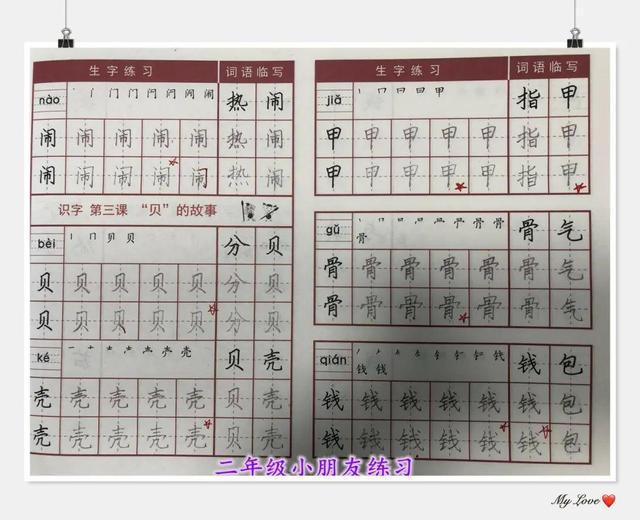 生字练习 词语临写
nào 门 闹 热 闹
闹 闹 闹 闹 闹 热 闹
闹 闹 闹 闹 闹 热 闹
识字 第三课 “贝”的故事
bèi 贝 贝 分 贝
贝 贝 贝 贝 贝 分 贝
贝 贝 贝 贝 贝 分 贝
ké 壳 贝 壳
壳 壳 壳 壳 壳 贝 壳
壳 壳 壳 壳 壳 贝 壳
生字练习 词语临写
jiǎ 甲 指 甲
甲 甲 甲 甲 甲 指 甲
甲 甲 甲 甲 甲 指 甲
gǔ 骨 骨 气
骨 骨 骨 骨 骨 骨 气
骨 骨 骨 骨 骨 骨 气
qián 钱 钱 钱 包
钱 钱 钱 钱 钱 钱 包
钱 钱 钱 钱 钱 钱 包
二年级小朋友练习
My Love